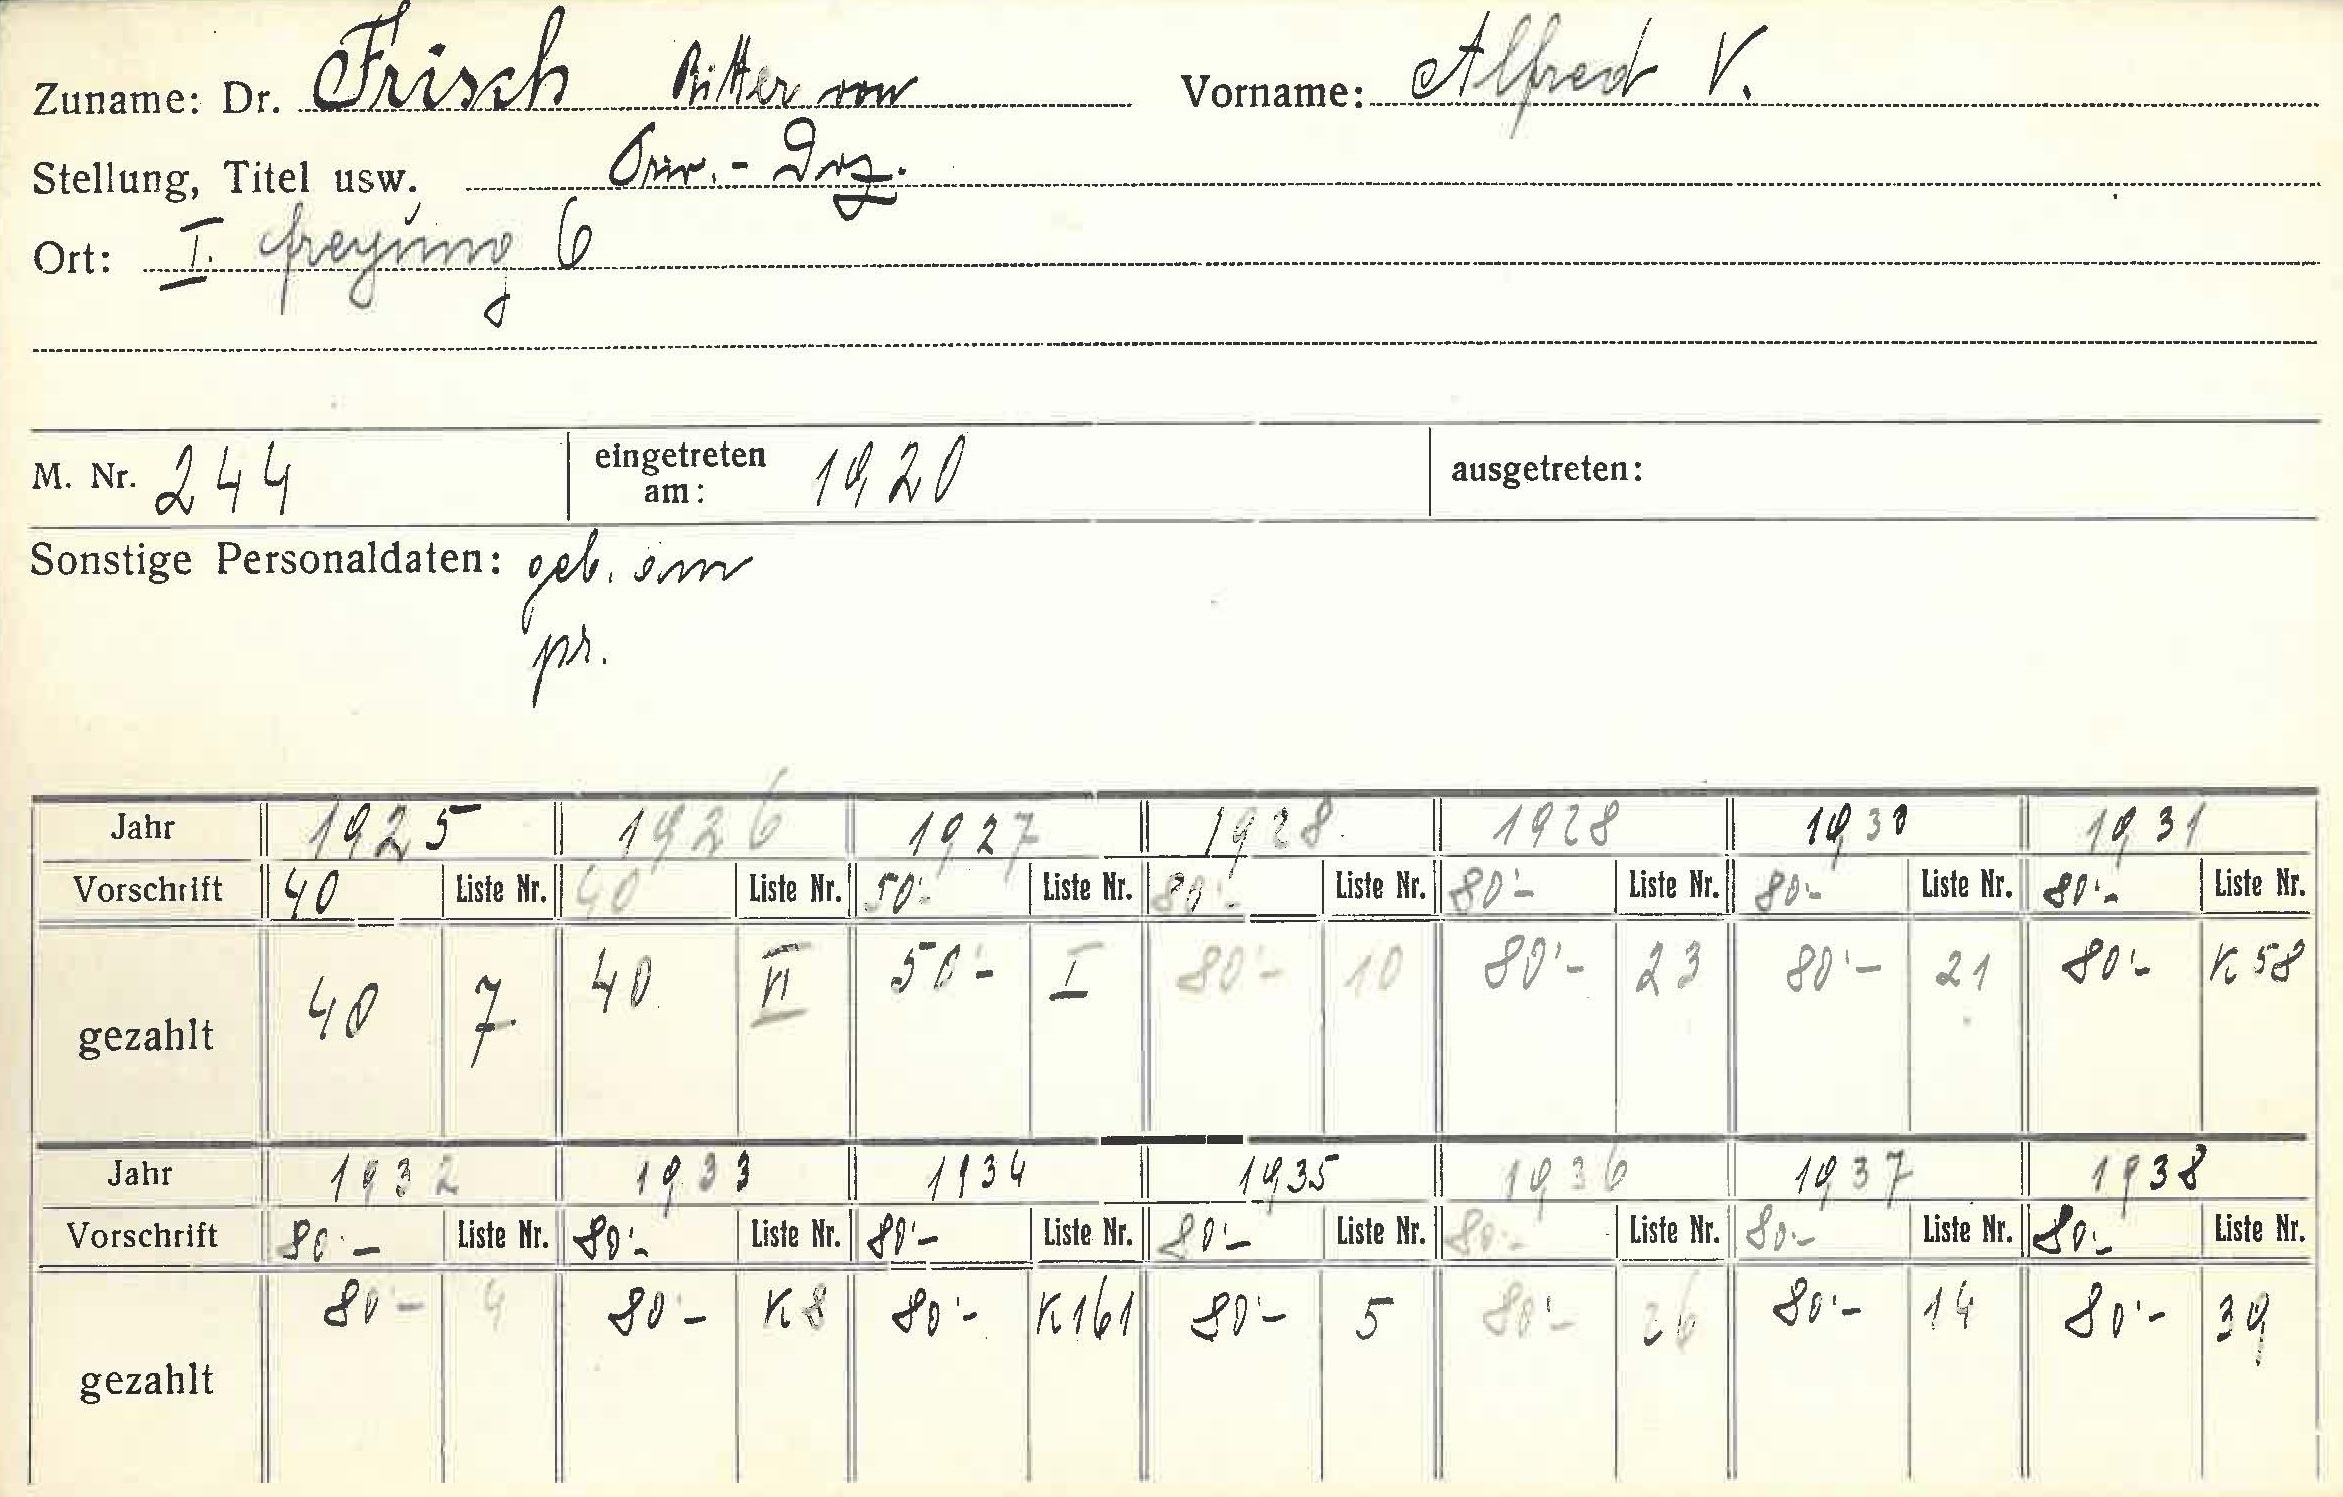 Zuname: Dr. Frisch Ritter von Vorname: Alfred V.
Stellung, Titel usw. Priv.-Doz.
Ort: I. Freyung 6
M. Nr. 244 eingetreten am: 1920 ausgetreten:
Sonstige Personaldaten: geb. am
pr.
Jahr 1925 1926 1927 1928 1928 1930 1931
Vorschrift 40 Liste Nr. 40 Liste Nr. 50'- Liste Nr. 80'- Liste Nr. 80'- Liste Nr. 80'- Liste Nr. 80'- Liste Nr.
gezahlt 40 7 40 VI 50'- I 80'- 10 80'- 23 80'- 21 80'- K 58
Jahr 1932 1933 1934 1935 1936 1937 1938
Vorschrift 80'- Liste Nr. 80'- Liste Nr. 80'- Liste Nr. 80'- Liste Nr. 80'- Liste Nr. 80'- Liste Nr. 80'- Liste Nr.
gezahlt 80'- 4 80'- K 8 80'- K 161 80'- 5 80'- 26 80'- 14 80'- 39